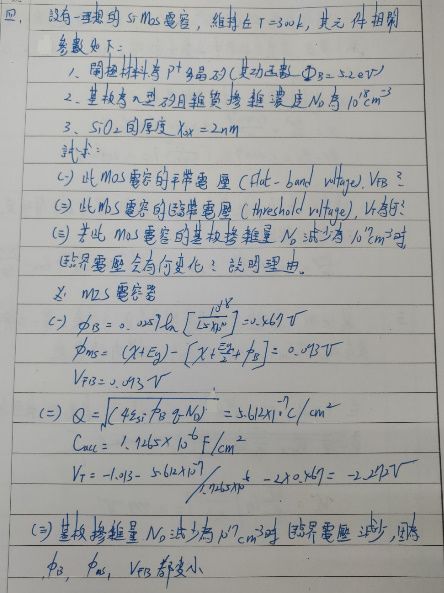 四. 設有一理想的 Si MOS 電容, 維持在 T=300k, 其元件相關
參數如下:
1. 閘極材料為 P+ 多晶矽(其功函數 ΦB=5.2eV)
2. 基板為 n型矽且雜質摻雜濃度 ND 為 10^18 cm^-3
3. SiO2 的厚度 Xox = 2nm
試求:
(一) 此 MOS 電容的平帶電壓 (Flat-band voltage), VFB?
(二) 此 MOS 電容的臨界電壓 (threshold voltage), VT 為何?
(三) 若此 MOS 電容的基板摻雜量 ND 減少為 10^17 cm^-3 時
臨界電壓會有何變化? 說明理由。
MIS 電容器
(一) ϕB = 0.0259 ln [10^18 / 1.5×10^10] = 0.467 V
ϕms = (X+Eg) - [X + Eg/2 + ϕB] = 0.093 V
VFB = 0.093 V
(二) Q = √(4εsi ϕB q ND) = 5.612×10^-7 C/cm^2
Cacc = 1.7265×10^-6 F/cm^2
VT = -1.013 - 5.612×10^-7 / 1.7265×10^-6 - 2×0.467 = -2.272V
(三) 基板摻雜量 ND 減少為 10^17 cm^-3 時 臨界電壓 減少, 因為
ϕB, ϕms, VFB 都變小